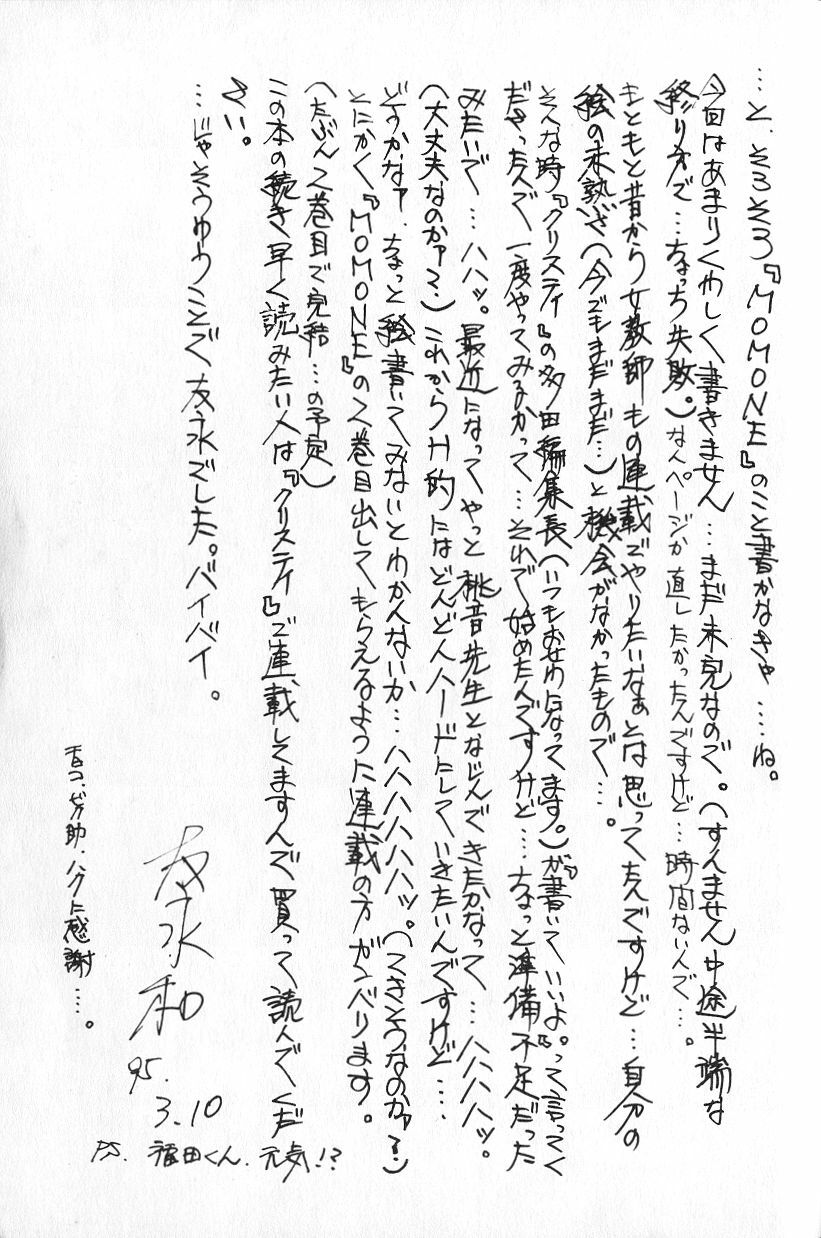 …と、そろそろ『MOMONE』のこと書かなきゃ…ね。
今回はあまりくわしく書きません…まだ未完なので。（すんません中途半端な
終り方で…ちょっち失敗。）なんページか直したかったんですけど…時間ないんで…。
もともと昔から女教師もの連載でやりたいなぁとは思ってたんですけど…自分の
絵の未熟さ（今でもまだまだ…）と機会がなかったもので…。
そんな時『クリスティ』の多田編集長（いつもお世わになってます。）が『書いていいよ。』って言ってく
ださったんで一度やってみるかって…それで始めたんですけど…ちょっと準備不足だった
みたいで…ハハッ。最近になってやっと桃音先生となじんできたかなって…ハハハハッ。
（大丈夫なのかァ？）これからH的にはどんどんハードにしていきたいんですけど…
どうかなァ、ちょっと絵書いてみないとわかんないか…ハハハハハハッ。（てきとうなのかァ？）
とにかく『MOMONE』の2巻目出してもらえるように連載の方ガンバります。
（たぶん2巻目で完結…の予定）
この本の続き早く読みたい人は『クリスティ』で連載してますんで買って読んでくだ
さい。
…じゃそうゆうことで友永でした。バイバイ。
友永和
'95.
3.10
P.S. 福田くん、元気!?